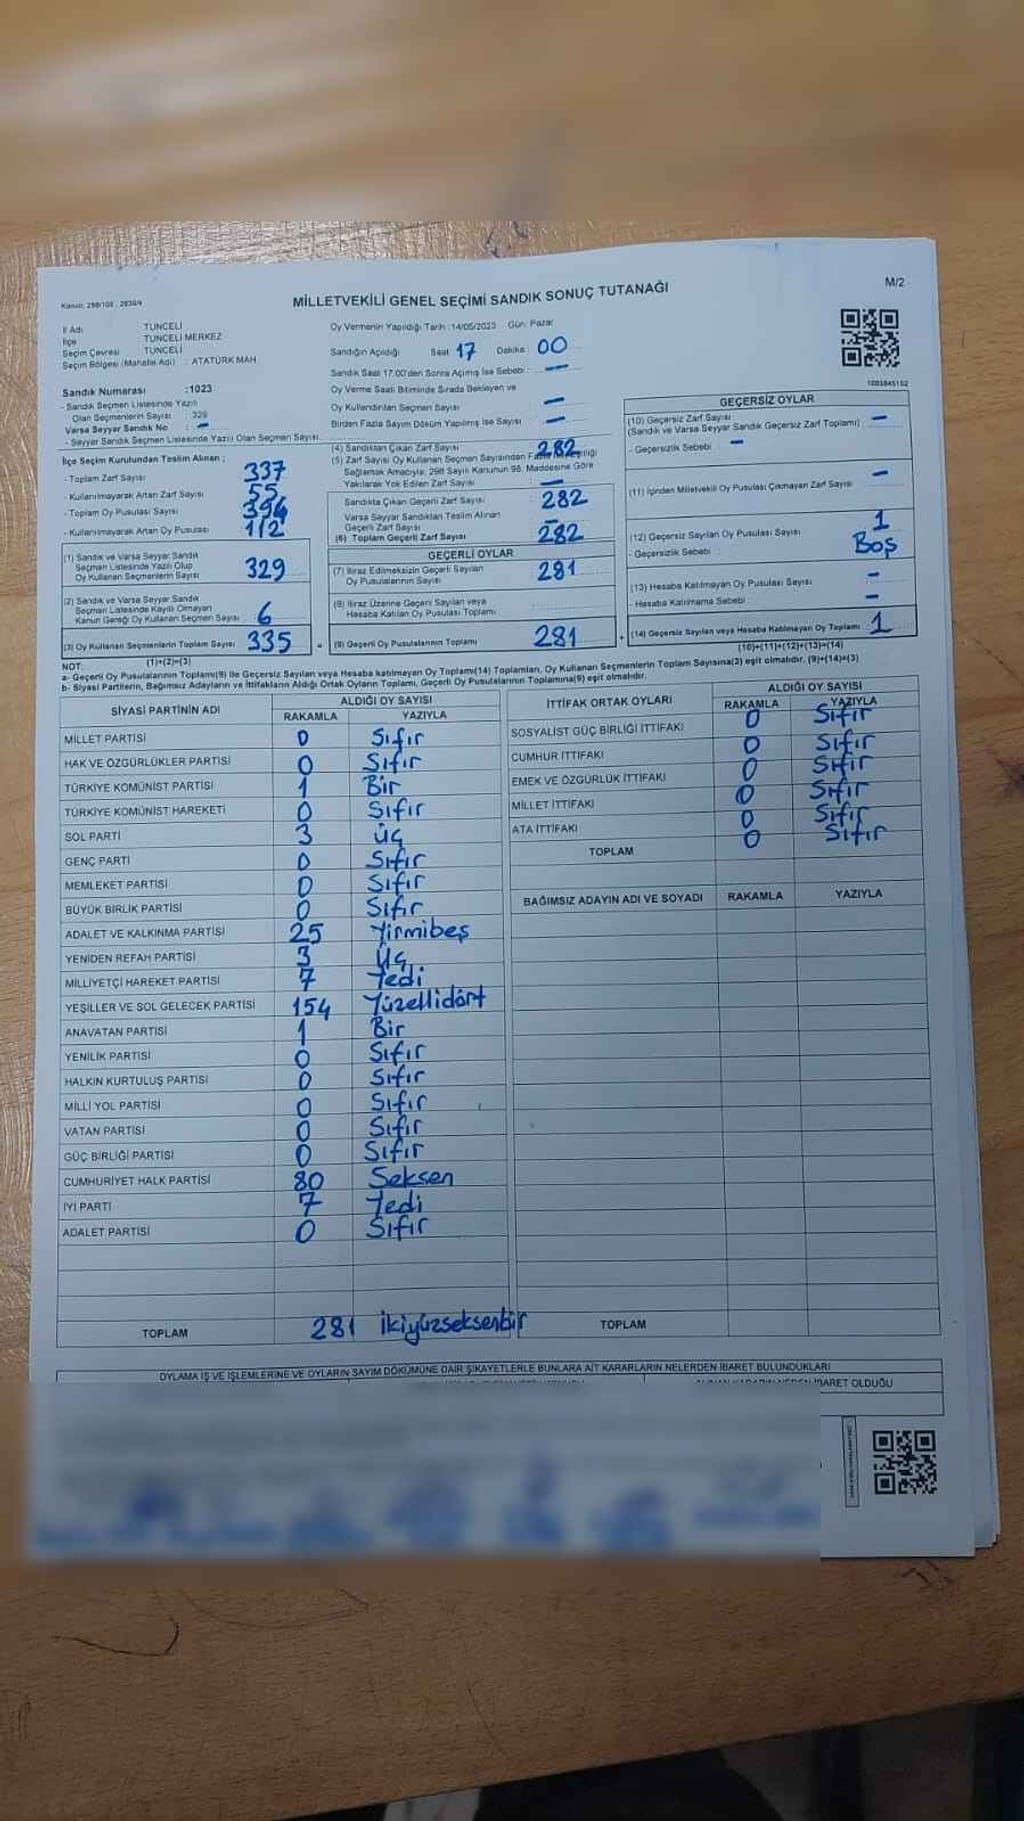 Kanun: 298/105 , 2839/4
M/2
MİLLETVEKİLİ GENEL SEÇİMİ SANDIK SONUÇ TUTANAĞI
İl Adı TUNCELİ
İlçe TUNCELİ MERKEZ
Seçim Çevresi TUNCELİ
Seçim Bölgesi (Mahalle Adı) : ATATÜRK MAH
Sandık Numarası :1023
- Sandık Seçmen Listesinde Yazılı
Olan Seçmenlerin Sayısı : 329
Varsa Seyyar Sandık No : –
- Seyyar Sandık Seçmen Listesinde Yazılı Olan Seçmen Sayısı
İlçe Seçim Kurulundan Teslim Alınan ;
- Toplam Zarf Sayısı 337
- Kullanılmayarak Artan Zarf Sayısı 55
- Toplam Oy Pusulası Sayısı 394
- Kullanılmayarak Artan Oy Pusulası 112
(1) Sandık ve Varsa Seyyar Sandık
Seçmen Listesinde Yazılı Olup
Oy Kullanan Seçmenlerin Sayısı 329
(2) Sandık ve Varsa Seyyar Sandık
Seçmen Listesinde Kayıtlı Olmayan
Kanun Gereği Oy Kullanan Seçmen Sayısı 6
(3) Oy Kullanan Seçmenlerin Toplam Sayısı 335
(1)+(2)=(3)
Oy Vermenin Yapıldığı Tarih :14/05/2023 Gün: Pazar
Sandığın Açıldığı Saat 17 Dakika : 00
Sandık Saat 17:00'den Sonra Açılmış İse Sebebi : –
Oy Verme Saati Bitiminde Sırada Bekleyen ve
Oy Kullandırılan Seçmen Sayısı –
Birden Fazla Sayım Döküm Yapılmış İse Sayısı –
(4) Sandıktan Çıkan Zarf Sayısı 282
(5) Zarf Sayısı Oy Kullanan Seçmen Sayısından
Sağlamak Amacıyla; 298 Sayılı Kanunun 98. Maddesine Göre
Yakılarak Yok Edilen Zarf Sayısı –
Sandıkta Çıkan Geçerli Zarf Sayısı 282
Varsa Seyyar Sandıktan Teslim Alınan
Geçerli Zarf Sayısı –
(6) Toplam Geçerli Zarf Sayısı 282
GEÇERLİ OYLAR
(7) İtiraz Edilmeksizin Geçerli Sayılan
Oy Pusulalarının Sayısı 281
(8) İtiraz Üzerine Geçerli Sayılan veya
Hesaba Katılan Oy Pusulası Toplamı
= (9) Geçerli Oy Pusulalarının Toplamı 281
1003845152
GEÇERSİZ OYLAR
(10) Geçersiz Zarf Sayısı
(Sandık ve Varsa Seyyar Sandık Geçersiz Zarf Toplamı) –
- Geçersizlik Sebebi : –
(11) İçinden Milletvekili Oy Pusulası Çıkmayan Zarf Sayısı –
(12) Geçersiz Sayılan Oy Pusulası Sayısı 1
- Geçersizlik Sebebi : Boş
(13) Hesaba Katılmayan Oy Pusulası Sayısı –
- Hesaba Katılmama Sebebi : –
+ (14) Geçersiz Sayılan veya Hesaba Katılmayan Oy Toplamı 1
(10)+(11)+(12)+(13)=(14)
NOT:
a- Geçerli Oy Pusulalarının Toplamı(9) ile Geçersiz Sayılan veya Hesaba katılmayan Oy Toplamı(14) Toplamları, Oy Kullanan Seçmenlerin Toplam Sayısına(3) eşit olmalıdır. (9)+(14)=(3)
b- Siyasi Partilerin, Bağımsız Adayların ve İttifakların Aldığı Ortak Oyların Toplamı, Geçerli Oy Pusulalarının Toplamına(9) eşit olmalıdır.
SİYASİ PARTİNİN ADI ALDIĞI OY SAYISI
RAKAMLA YAZIYLA
MİLLET PARTİSİ 0 Sıfır
HAK VE ÖZGÜRLÜKLER PARTİSİ 0 Sıfır
TÜRKİYE KOMÜNİST PARTİSİ 1 Bir
TÜRKİYE KOMÜNİST HAREKETİ 0 Sıfır
SOL PARTİ 3 Üç
GENÇ PARTİ 0 Sıfır
MEMLEKET PARTİSİ 0 Sıfır
BÜYÜK BİRLİK PARTİSİ 0 Sıfır
ADALET VE KALKINMA PARTİSİ 25 Yirmibeş
YENİDEN REFAH PARTİSİ 3 Üç
MİLLİYETÇİ HAREKET PARTİSİ 7 Yedi
YEŞİLLER VE SOL GELECEK PARTİSİ 154 Yüzellidört
ANAVATAN PARTİSİ 1 Bir
YENİLİK PARTİSİ 0 Sıfır
HALKIN KURTULUŞ PARTİSİ 0 Sıfır
MİLLİ YOL PARTİSİ 0 Sıfır
VATAN PARTİSİ 0 Sıfır
GÜÇ BİRLİĞİ PARTİSİ 0 Sıfır
CUMHURİYET HALK PARTİSİ 80 Seksen
İYİ PARTİ 7 Yedi
ADALET PARTİSİ 0 Sıfır
TOPLAM 281 ikiyüzseksenbir
İTTİFAK ORTAK OYLARI ALDIĞI OY SAYISI
RAKAMLA YAZIYLA
SOSYALİST GÜÇ BİRLİĞİ İTTİFAKI 0 Sıfır
CUMHUR İTTİFAKI 0 Sıfır
EMEK VE ÖZGÜRLÜK İTTİFAKI 0 Sıfır
MİLLET İTTİFAKI 0 Sıfır
ATA İTTİFAKI 0 Sıfır
TOPLAM 0 Sıfır
BAĞIMSIZ ADAYIN ADI VE SOYADI RAKAMLA YAZIYLA
TOPLAM
OYLAMA İŞ VE İŞLEMLERİNE VE OYLARIN SAYIM DÖKÜMÜNE DAİR ŞİKAYETLERLE BUNLARA AİT KARARLARIN NELERDEN İBARET BULUNDUKLARI
İBARET OLDUĞU